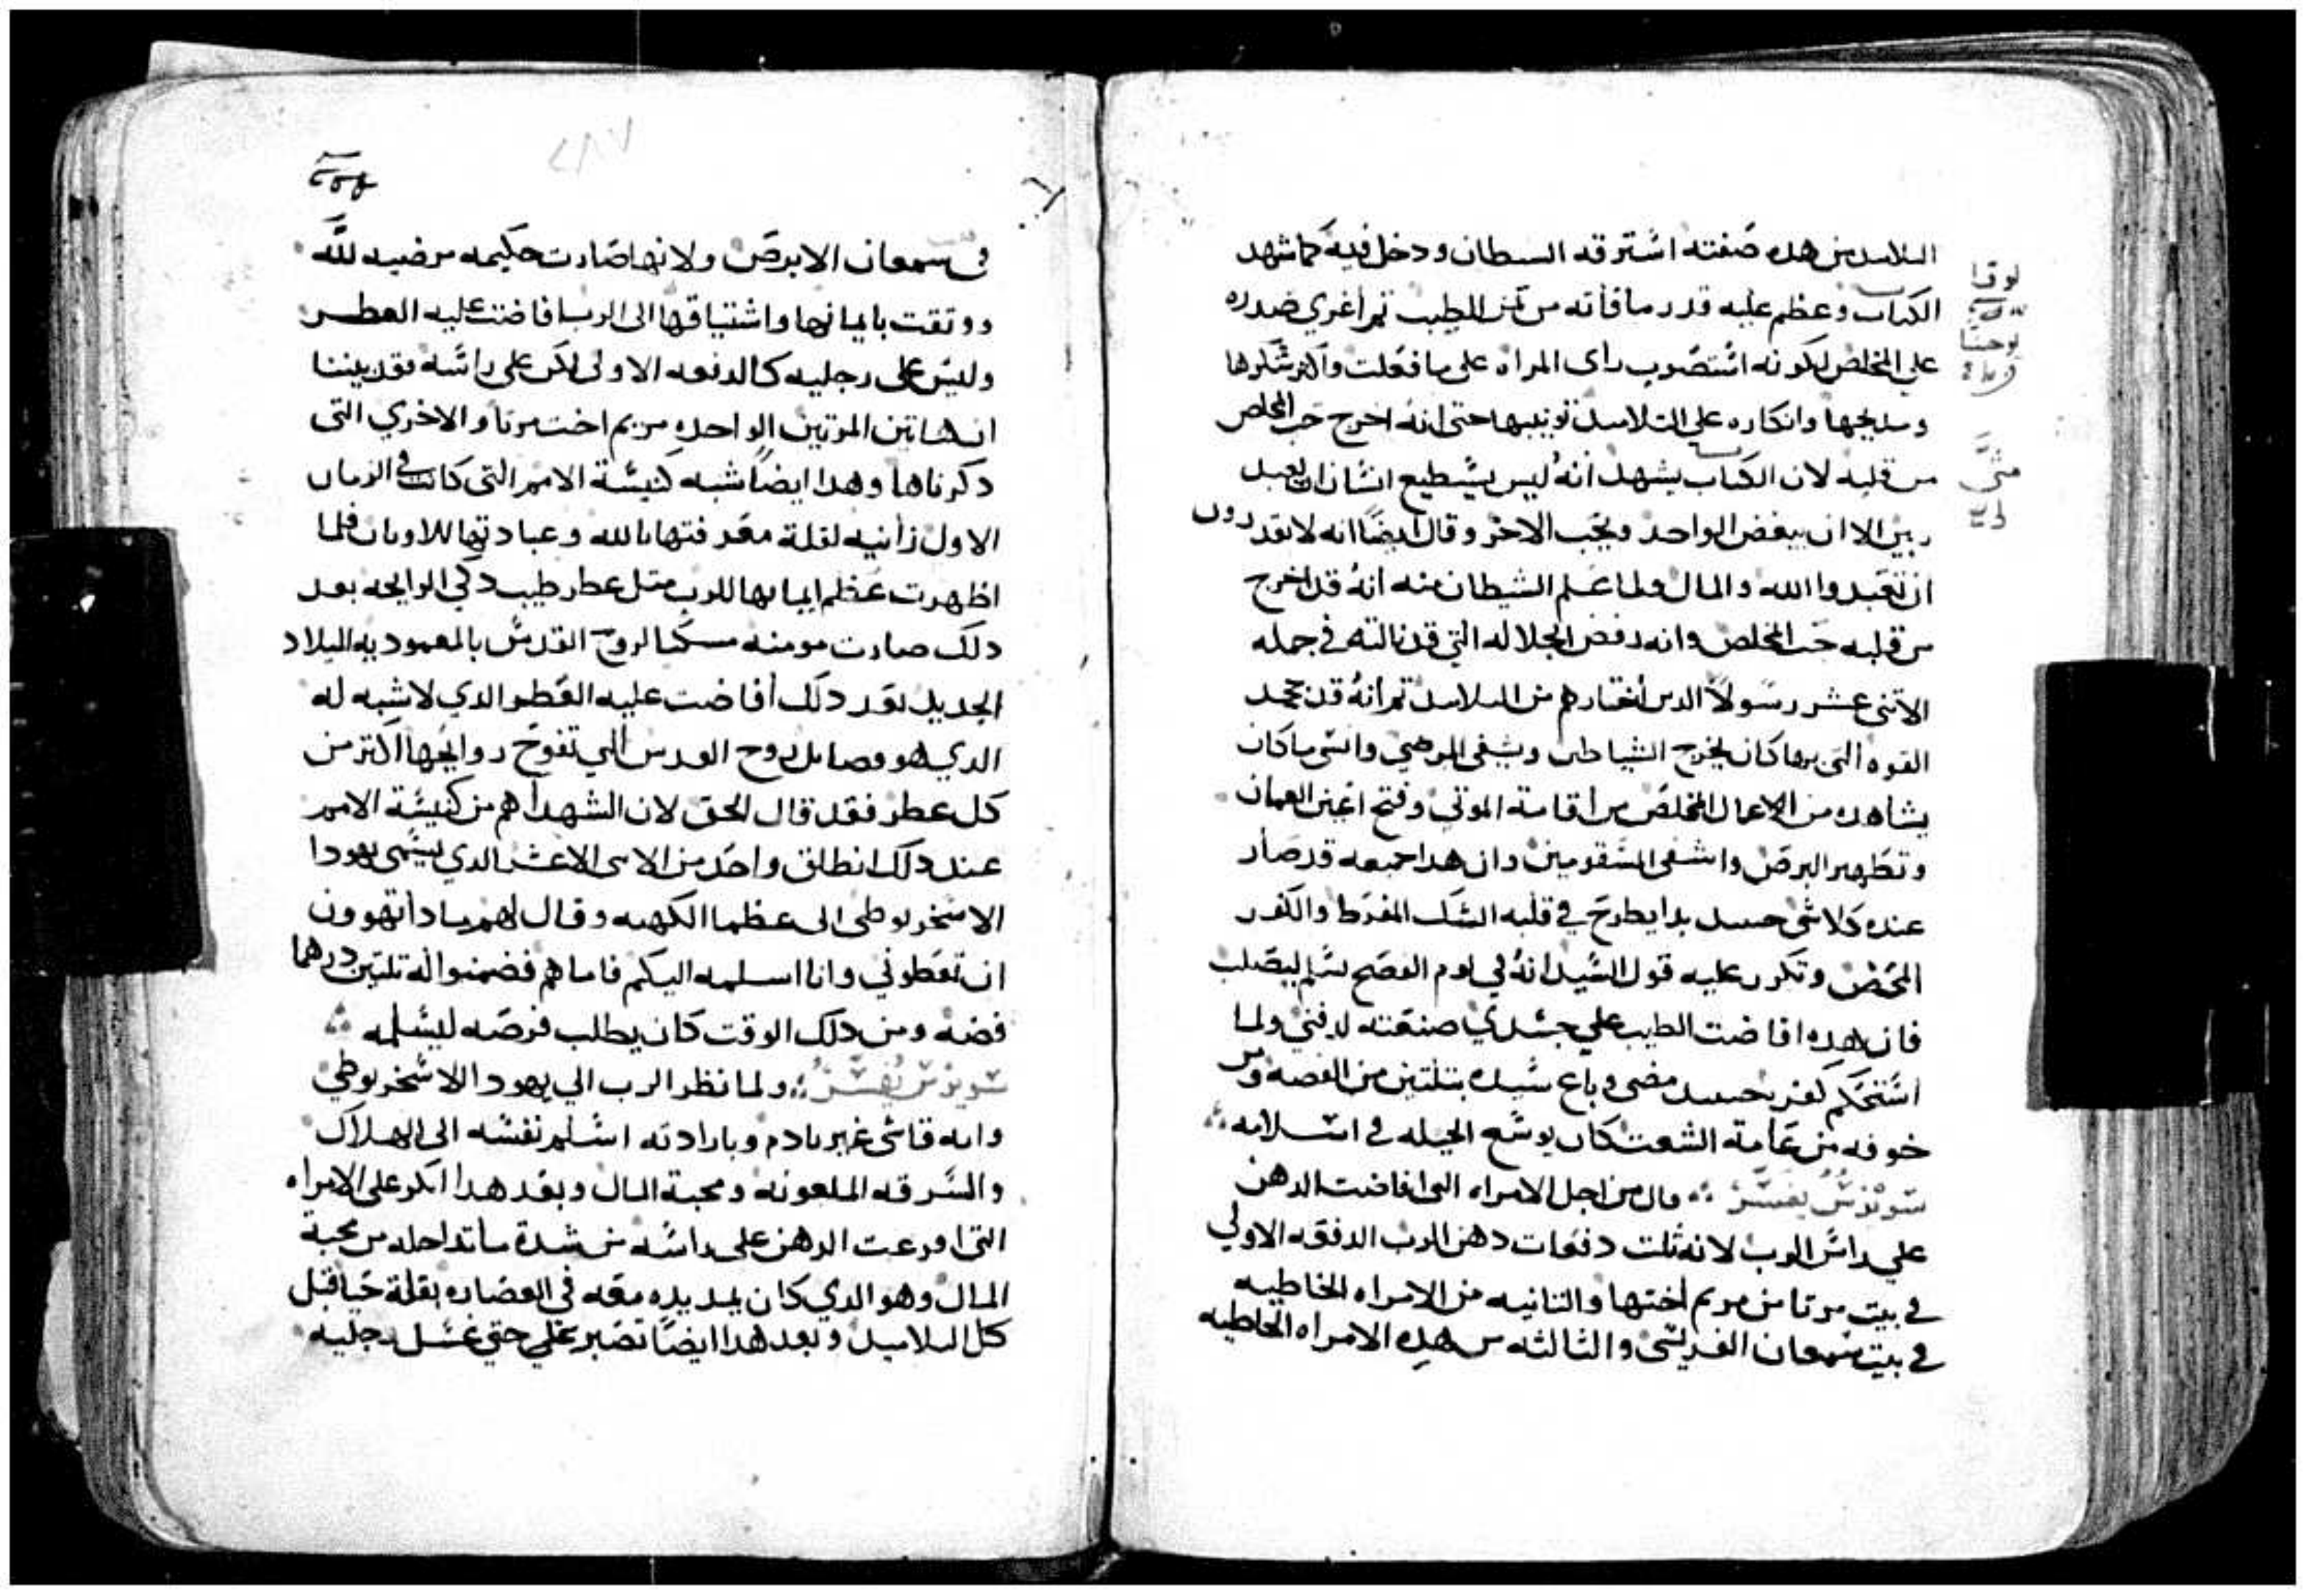 التلاميد من هده صفته استرقه السيطان ودخل فيه كما شهد
الكتاب وعظم عليه قدر ما فاته من ثمن الطيب تم اغري صدره
علي المخلص لكونه استصوب راى المراه على ما فعلت واكتر شكرها
ومديحها وانكاره على التلاميد تونيبها حتى انه اخرج حب المخلص
من قلبه لان الكتاب يشهد انه ليس يستطيع انسان ان يعبد
ربين الا ان يبغض الواحد ويحب الاخر وقال ايضا انه لا تقدرون
ان تعبدوا الله والمال ولما علم الشيطان منه انه قد اخرج
من قلبه حب المخلص وانه رفض الجلاله التي قد نالته في جمله
الاتنى عشر رسولا الدين اختارهم من التلاميد تم انه قد جحد
القوه التى بها كان يخرج الشياطين ويشفى المرضي وانسى ما كان
يشاهده من الاعمال المخلص من اقامة الموتي وفتح اعين العميان
وتطهير البرص واشفى السقومين وان هدا جميعه قد صار
عنده كلاشى حينيد بدا يطرح في قلبه الشك المفرط والكفر
المحض وتكرر عليه قول السيد انه في يوم الفصح يسلم ليصلب
فان هده افاضت الطيب علي جسدي صنعته لدفني ولما
استحكم كفره حينيد مضى وباع سيده بتلتين من الفضه ومن
خوفه من عامة الشعب كان يوسع الحيله في اسلامه
سويرس يفسر قال من اجل الامراه التى افاضت الدهن
علي راس الرب لانه تلت دفعات دهن الرب الدفعه الاولي
في بيت مرتا من مريم اختها والتانيه من الامراه الخاطيه
في بيت سمعان الفريسى والثالثه من هده الامراه الخاطيه
لوقا
يوحنا
متى
في سمعان الابرص ولانها صارت حكيمه مرضيه لله
ووتقت بايمانها واشتياقها الى الرب افاضت عليه العطر
وليس على رجليه كالدفعه الاولى لكن على راسه فقد بيننا
ان هاتين المرتين الواحده مريم اخت مرتا والاخري التى
دكرناها وهدا ايضا شبه كنيسة الامم التى كانت في الزمان
الاول زانيه لقلة معرفتها بالله وعبادتها للاوتان فلما
اظهرت عظم ايمانها للرب متل عطر طيب دكي الرايحه بعد
دلك صارت مومنه مسكنا لروح القدس بالمعموديه الميلاد
الجديد بعد دلك افاضت عليه العطر الدي لا شبه له
الدي هو فصايل روح القدس التي تفوح روايحها اكتر من
كل عطر فقد قال الحق لان الشهدا هم من كنيسة الامم
عند دلك انطلق واحد من الاتنى الاعشر الدي يسمى يهودا
الاسخريوطى الى عظما الكهنه وقال لهم مادا تهوون
ان تعطوني وانا اسلمه اليكم فاما هم فضمنوا له تلتين درهما
فضه ومن دلك الوقت كان يطلب فرصه ليسلمه
سويرس يفسر ولما نظر الرب الي يهودا الاسخريوطي
وانه قاسى غير نادم وبارادته اسلم نفسه الى الهلاك
والسرقه الملعونه ومحبة المال وبعد هدا انكر على الامراه
التى افرغت الدهن على راسه من شدة ما تداخله من محبة
المال وهو الدي كان يمد يده معه في الغضاره بقلة حيا قبل
كل التلاميد وبعد هدا ايضا تصبر علي حتي غسل رجليه